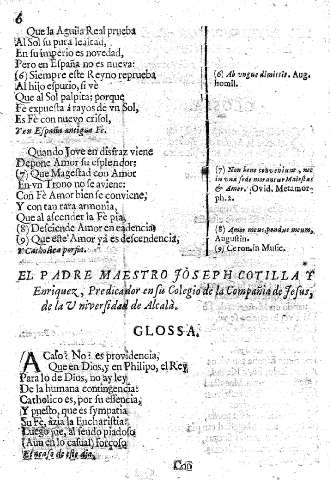 6
Que la Aguila Real prueba
Al Sol su pura lealtad,
En su imperio es novedad,
Pero en España no es nueva:
(6) Siempre este Reyno reprueba
Al hijo espurio, si vè
Que al Sol palpita; porque
Fè expuesta à rayos de vn Sol,
Es Fè con nuevo crisol,
Y en España antigua Fe.
(6) Ab vngue dimittit. Aug.
homil.
Quando Jove en disfraz viene
Depone Amor su esplendor;
(7) Que Magestad con Amor
En vn Trono no se aviene:
Con Fè Amor bien se conviene,
Y con tan rara armonia,
Que al ascender la Fè pia,
(8) Desciende Amor en cadencia
(9) Que este Amor yà es descendencia,
Y Catholica porfia.
(7) Non bene conveniunt, nec
in vna sede morantur Maiestas
& Amor. Ovid. Metamor-
ph. 2.
(8) Amor meus pondus meum,
Augustin.
(9) Ceron. in Music.
EL PADRE MAESTRO JOSEPH COTILLA Y
Enriquez, Predicador en su Colegio de la Compañia de Jesus,
de la Vniversidad de Alcalà.
GLOSSA.
ACaso? No: es providencia,
Que en Dios, y en Philipo, el Rey
Para lo de Dios, no ay ley
De la humana contingencia:
Catholico es, por su essencia,
Y puesto, que es sympatia
Su Fè, àzia la Eucharistia:
Luego fue, al feudo piadoso
(Aun en lo casual) forçoso
El acaso de este dia.
Con